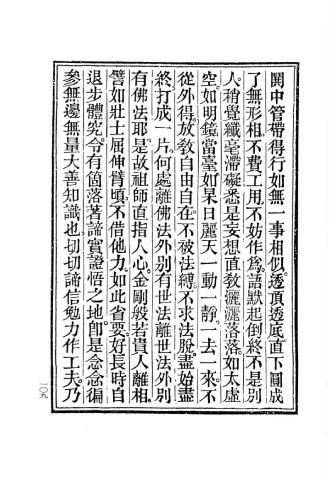 閙中管帶得行如無一事相似透頂透底直下圓成
了無形相不費工用不妨作爲語默起倒終不是別
人稍覺纖毫滯礙悉是妄想直敎灑灑落落如太虛
空如明鏡當臺如杲日麗天一動一靜一去一來不
從外得放敎自由自在不被法縛不求法脫盡始盡
終打成一片何處離佛法外別有世法離世法外別
有佛法耶是故祖師直指人心金剛般若貴人離相
譬如壯士屈伸臂頃不借他力如此省要好長時自
退步體究令有箇落著諦實證悟之地卽是念念徧
參無邊無量大善知識也切切諦信勉力作工夫乃
一〇九